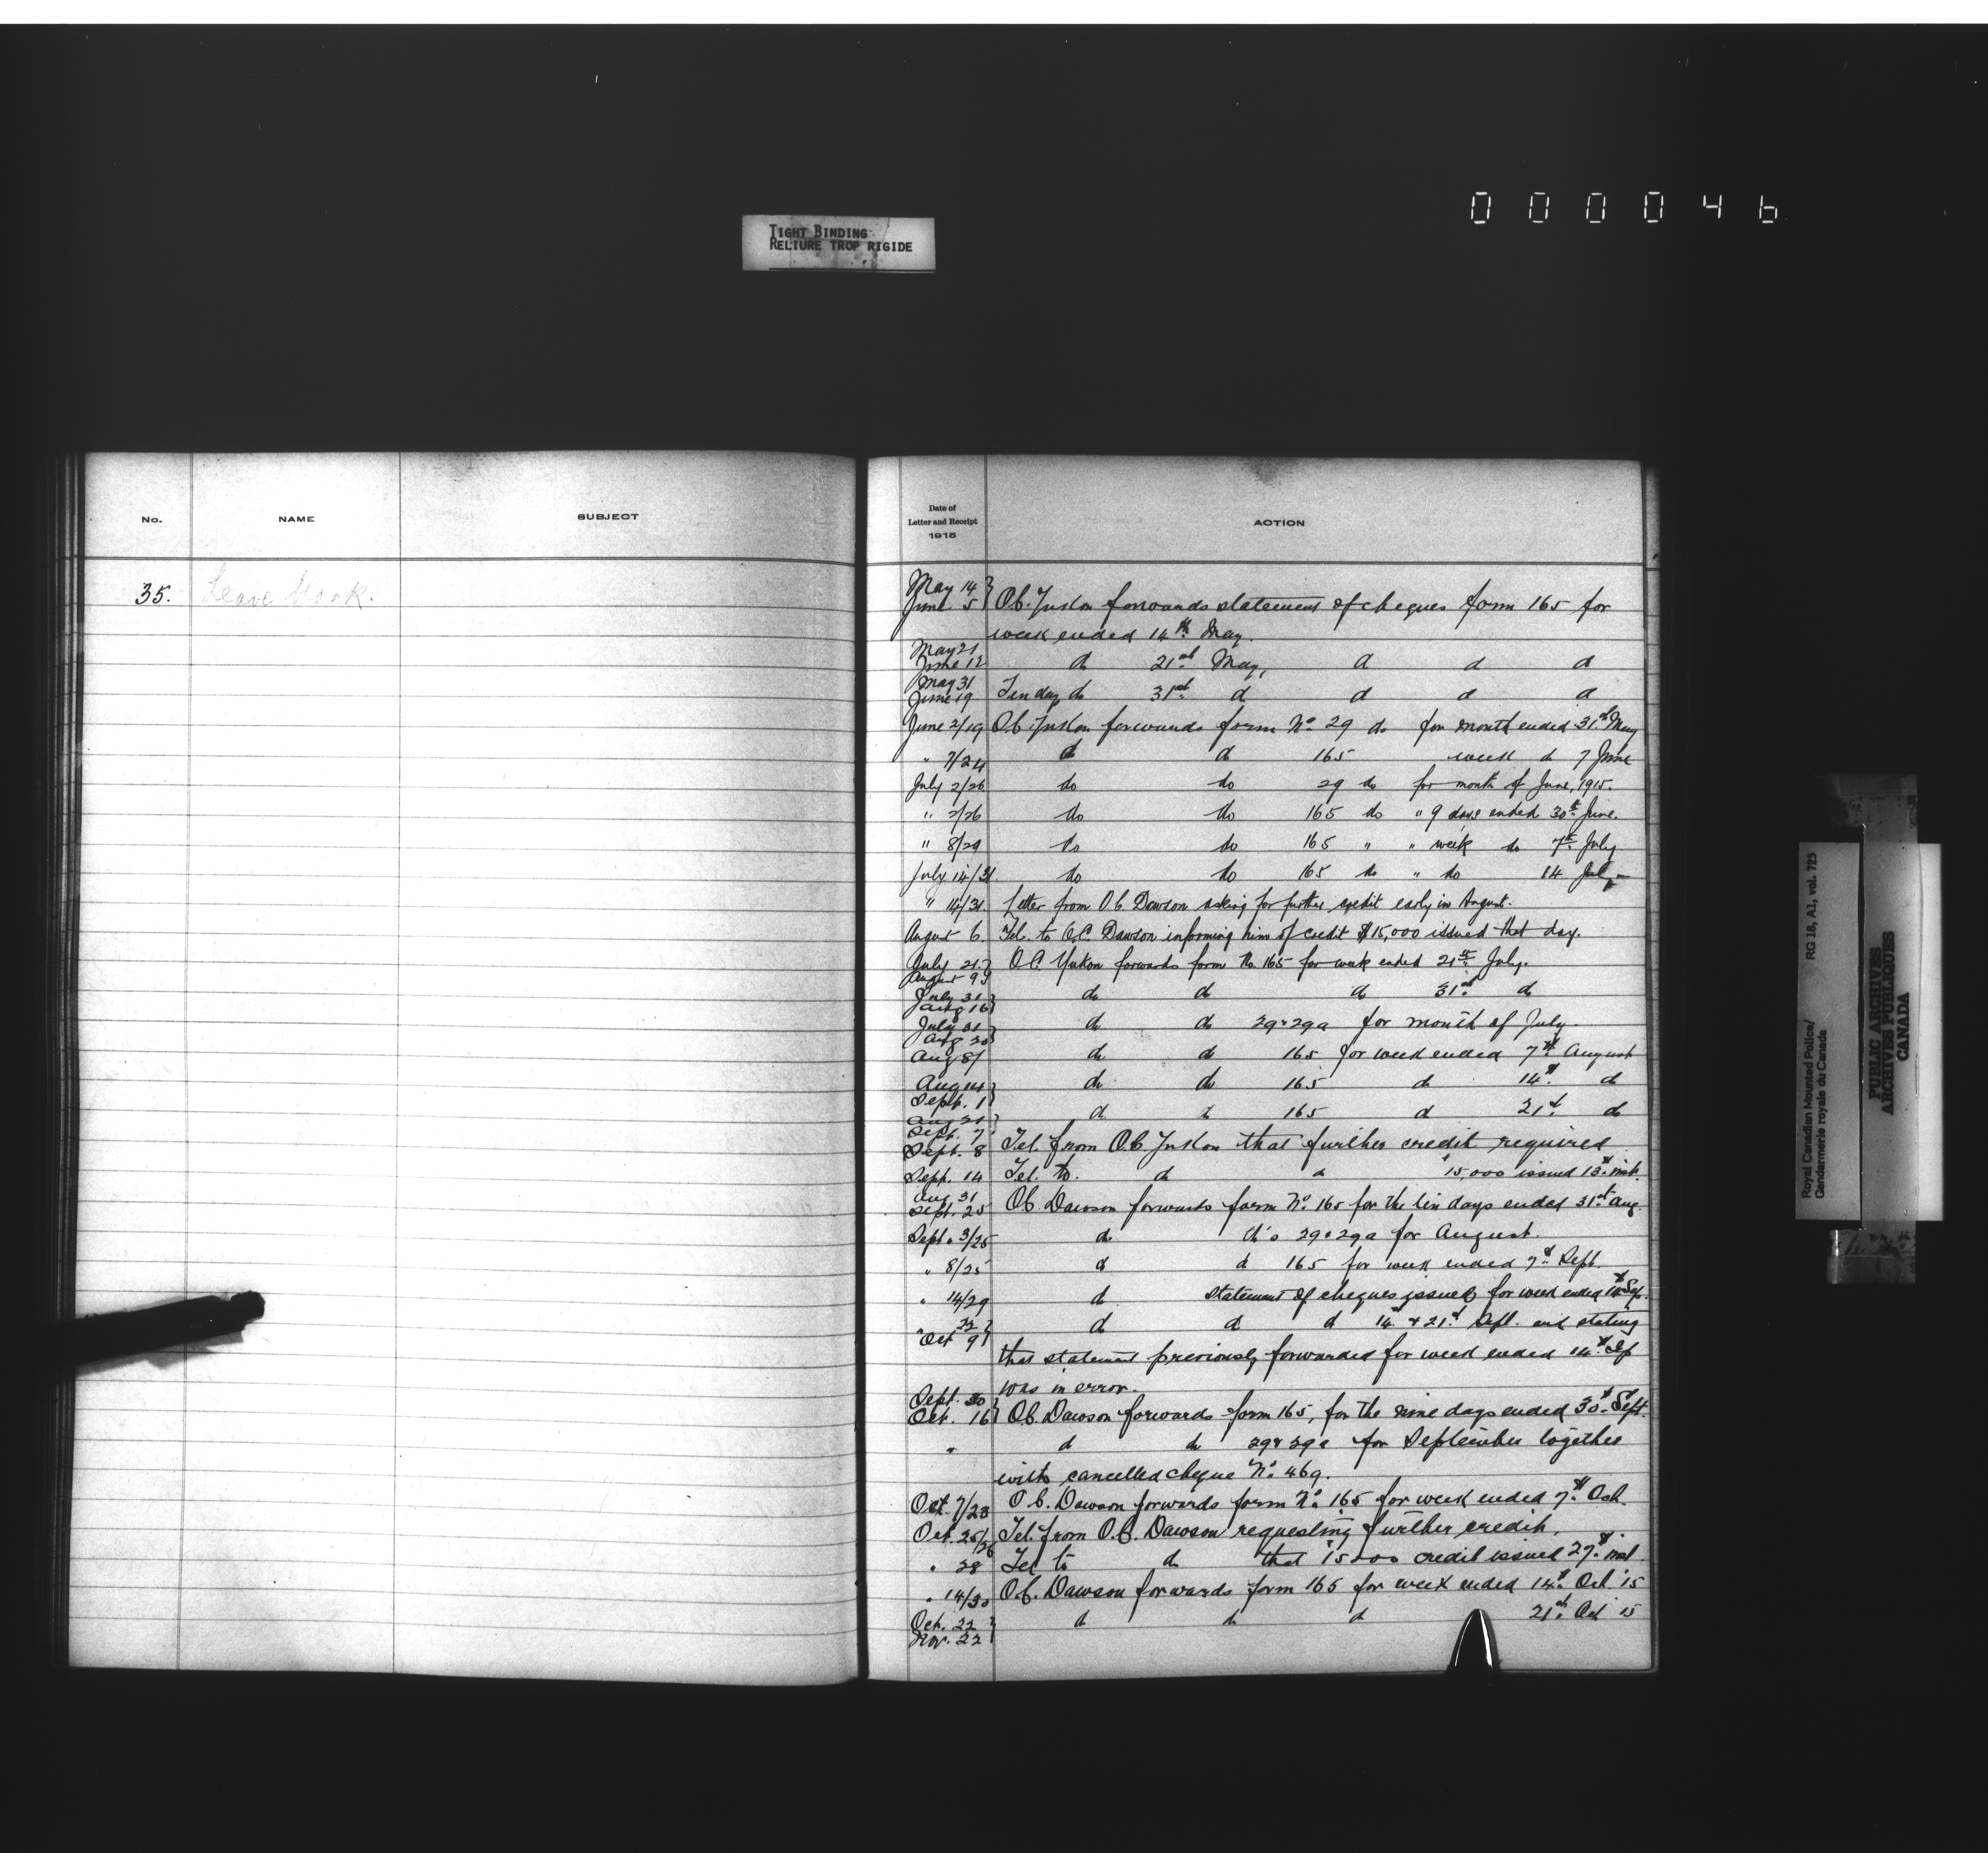 000046
TIGHT BINDING
RELIURE TROP RIGIDE
No.
NAME
SUBJECT
35. Leave blank.
Date of
Letter and Receipt
1915
ACTION
May 14
June 5 } O.C. Yukon forwards statement of cheques form 165 for
week ended 14th May.
May 21
June 12 do 21st May, do do do
May 31
June 19 Ten days do 31st do do do do
June 2/19 O.C. Yukon forwards form No. 29 do for month ended 31st May
" 7/24 do do 165 week do 7 June
July 2/26 do do 29 do for month of June, 1915.
" 2/26 do do 165 do " 9 days ended 30th June.
" 8/29 do do 165 " " week do 7th July
July 14/31. do do 165 do " do 14 July
" 14/31 Letter from O C Dawson asking for further credit early in August.
August 6. Tel. to O.C. Dawson informing him of credit $15,000 issued that day.
July 21
August 9 } O.C. Yukon forwards form No. 165 for week ended 21st July.
July 31
Aug 16 } do do do 31st do
July 31
Aug 20 } do do 29 & 29a for month of July.
Aug 8/ do do 165 for week ended 7th August
Aug 14
Sept. 1 } do do 165 do 14th do
Aug 21
Sept. 7 } do do 165 do 21st do
Sept. 8 Tel. from O.C. Yukon that further credit required
Sept. 14 Tel. to. do do $15,000 issued 13th inst.
Aug 31
Sept. 25 O.C. Dawson forwards form No. 165 for the ten days ended 31st Aug.
Sept. 3/25 do do's 29 & 29a for August.
" 8/25 do do 165 for week ended 7th Sept.
" 14/29 do statement of cheques issued for week ended 14th Sep.
" 22
Oct 9 } do do do 14th & 21st Sept. and stating
that statement previously forwarded for week ended 14th Sep
was in error.
Sept. 30
Oct. 16 } O.C. Dawson forwards form 165, for the nine days ended 30th Sept.
" do do 29 & 29a for September together
with cancelled cheque No. 469.
Oct 7/23 O.C. Dawson forwards form No. 165 for week ended 7th Oct.
Oct. 25/26 Tel. from O.C. Dawson requesting further credit.
" 28 Tel to do that $15000 credit issued 27th inst.
" 14/30 O.C. Dawson forwards form 165 for week ended 14th Oct 15
Oct. 22
Nov. 22 } do do do 21st Oct 15
Royal Canadian Mounted Police/
Gendarmerie royale du Canada
RG 18, A1, vol. 725
PUBLIC ARCHIVES
ARCHIVES PUBLIQUES
CANADA